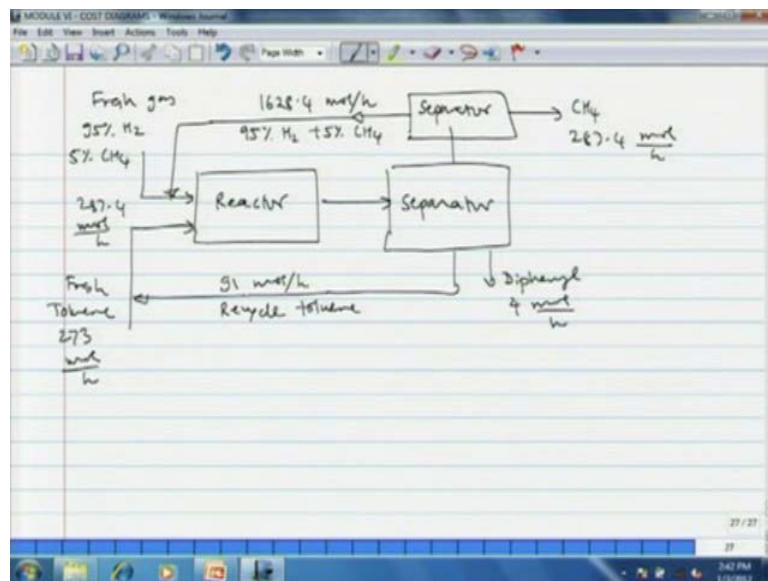 MODULE VI - COST DIAGRAMS - Windows Journal
File Edit View Insert Actions Tools Help
Page Width
Fresh gas
95% H2
5% CH4
1628.4 mol/h
95% H2 + 5% CH4
Separator
CH4
287.4 mol/h
287.4
mol/h
Reactor
Separator
Fresh
Toluene
273
mol/h
91 mol/h
Recycle toluene
Diphenyl
4 mol/h
27 / 27
27
2:42 PM